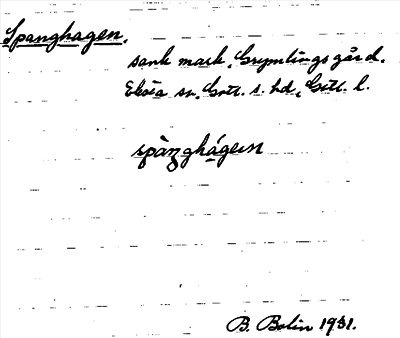 Spanghagen.
sank mark, Grymlings gård.
Eksta sn. Gotl. s. hd, Gotl. l.
spàŋghágεn
B. Bolin 1931.